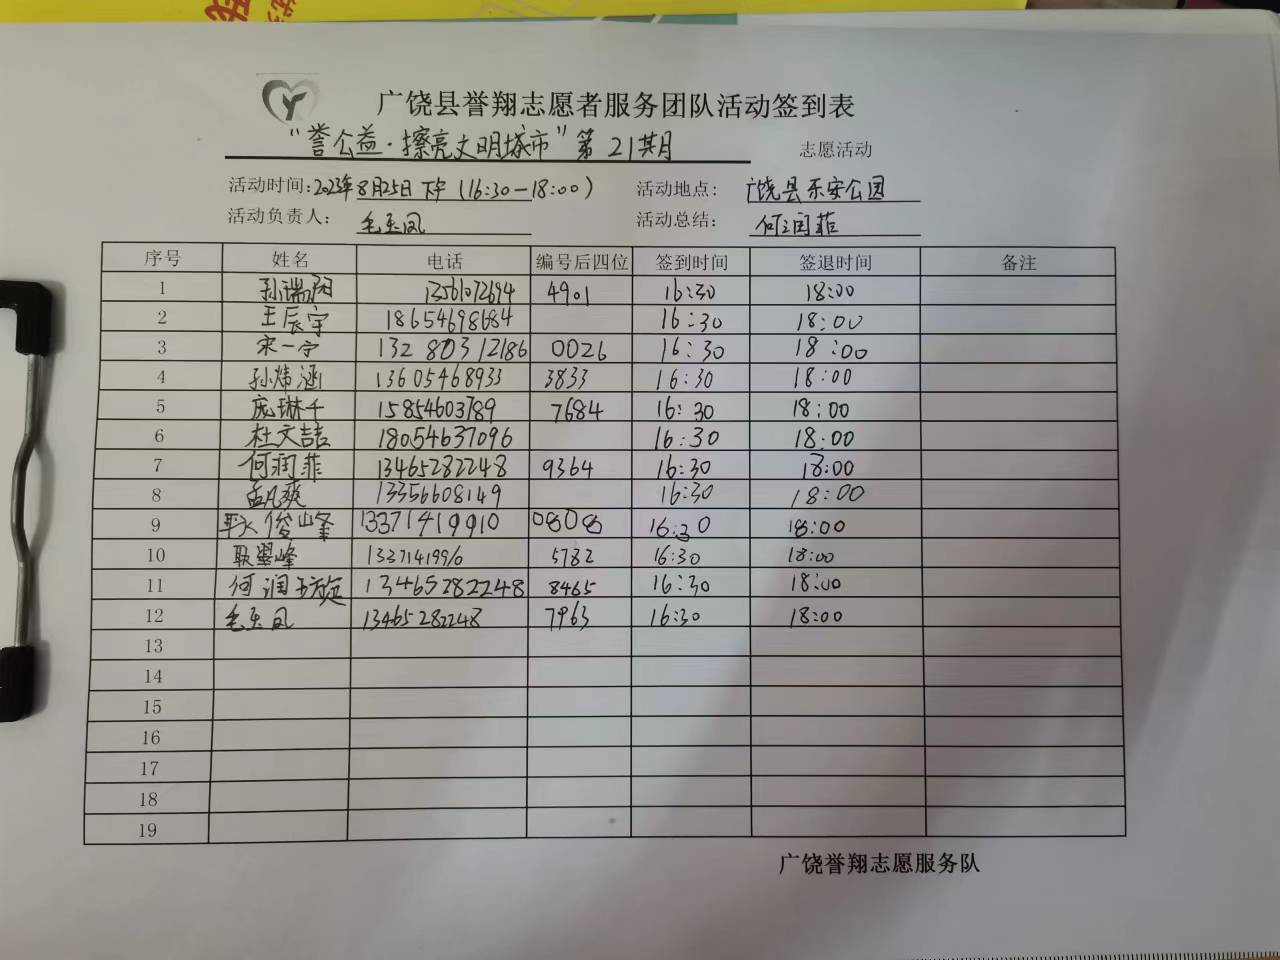 广饶县誉翔志愿者服务团队活动签到表
“誉公益·擦亮文明城市”第21期 志愿活动
活动时间：2023年8月25日下午（16:30-18:00） 活动地点： 广饶县乐安公园
活动负责人： 毛玉凤 活动总结： 何润菲
序号 姓名 电话 编号后四位 签到时间 签退时间 备注
1 孙瑞阳 13561072694 4901 16:30 18:00
2 王辰宇 18654698684 16:30 18:00
3 宋一宁 13280312186 0026 16:30 18:00
4 孙炜涵 13605468933 3833 16:30 18:00
5 庞琳千 15854603789 7684 16:30 18:00
6 杜文喆 18054637096 16:30 18:00
7 何润菲 13465282248 9364 16:30 18:00
8 孟凡爽 13356608149 16:30 18:00
9 耿俊峰 13371419910 0808 16:30 18:00
10 耿翠峰 5782 16:30 18:00
11 何润旎 13465282248 8465 16:30 18:00
12 毛玉凤 13465282248 7963 16:30 18:00
13
14
15
16
17
18
19
广饶誉翔志愿服务队